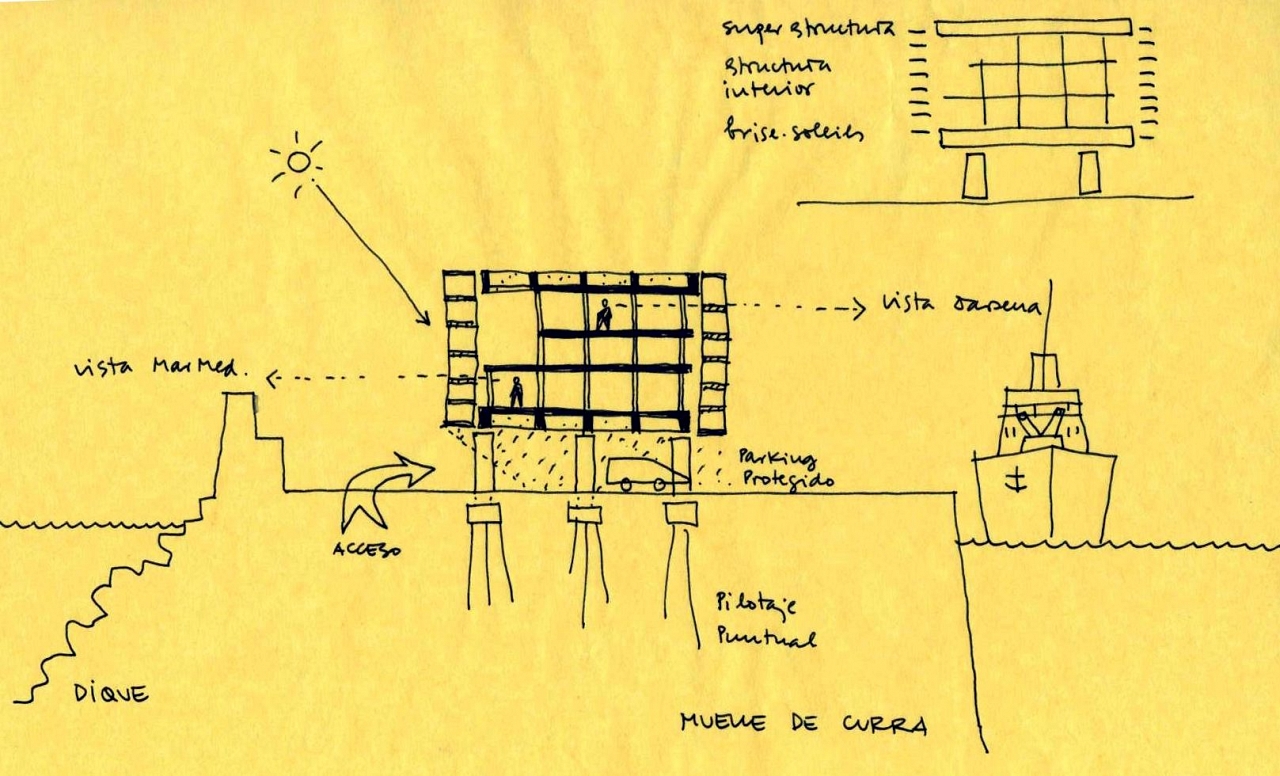 superstructura
structura
interior
brise-soleils
vista darsena
vista Mar Med.
Parking
Protegido
ACCESO
Pilotaje
Puntual
DIQUE
MUELLE DE CURRA